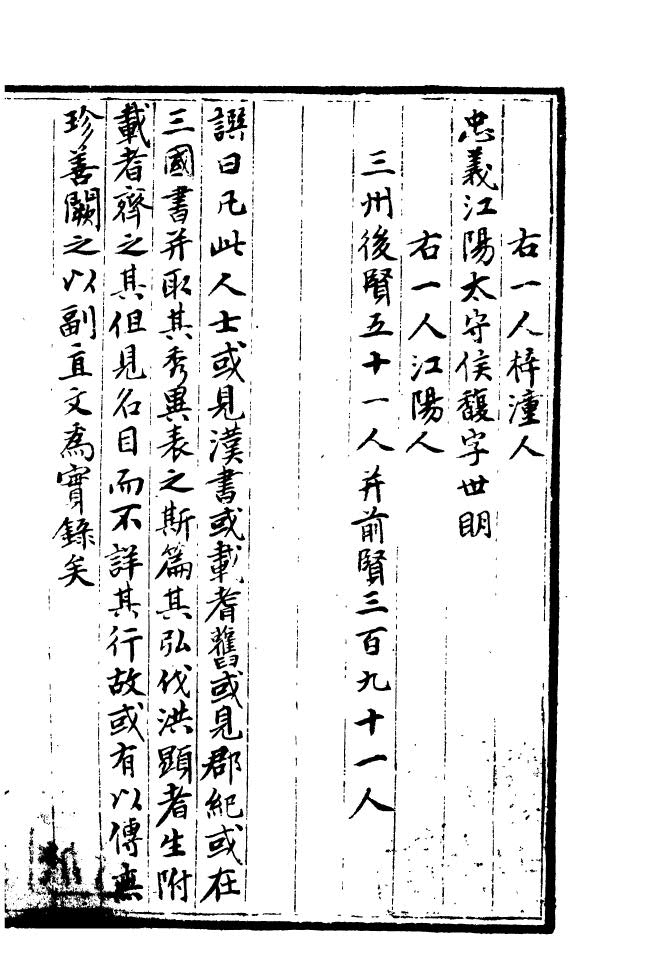 右一人梓潼人
忠義江陽太守侯馥字世明
右一人江陽人
三州後賢五十一人并前賢三百九十一人
譔曰凡此人士或見漢書或載耆舊或見郡紀或在
三國書并取其秀異表之斯篇其弘伐洪顯者生附
載者齊之其但見名目而不詳其行故或有以傳無
珍善闕之以副直文為實錄矣